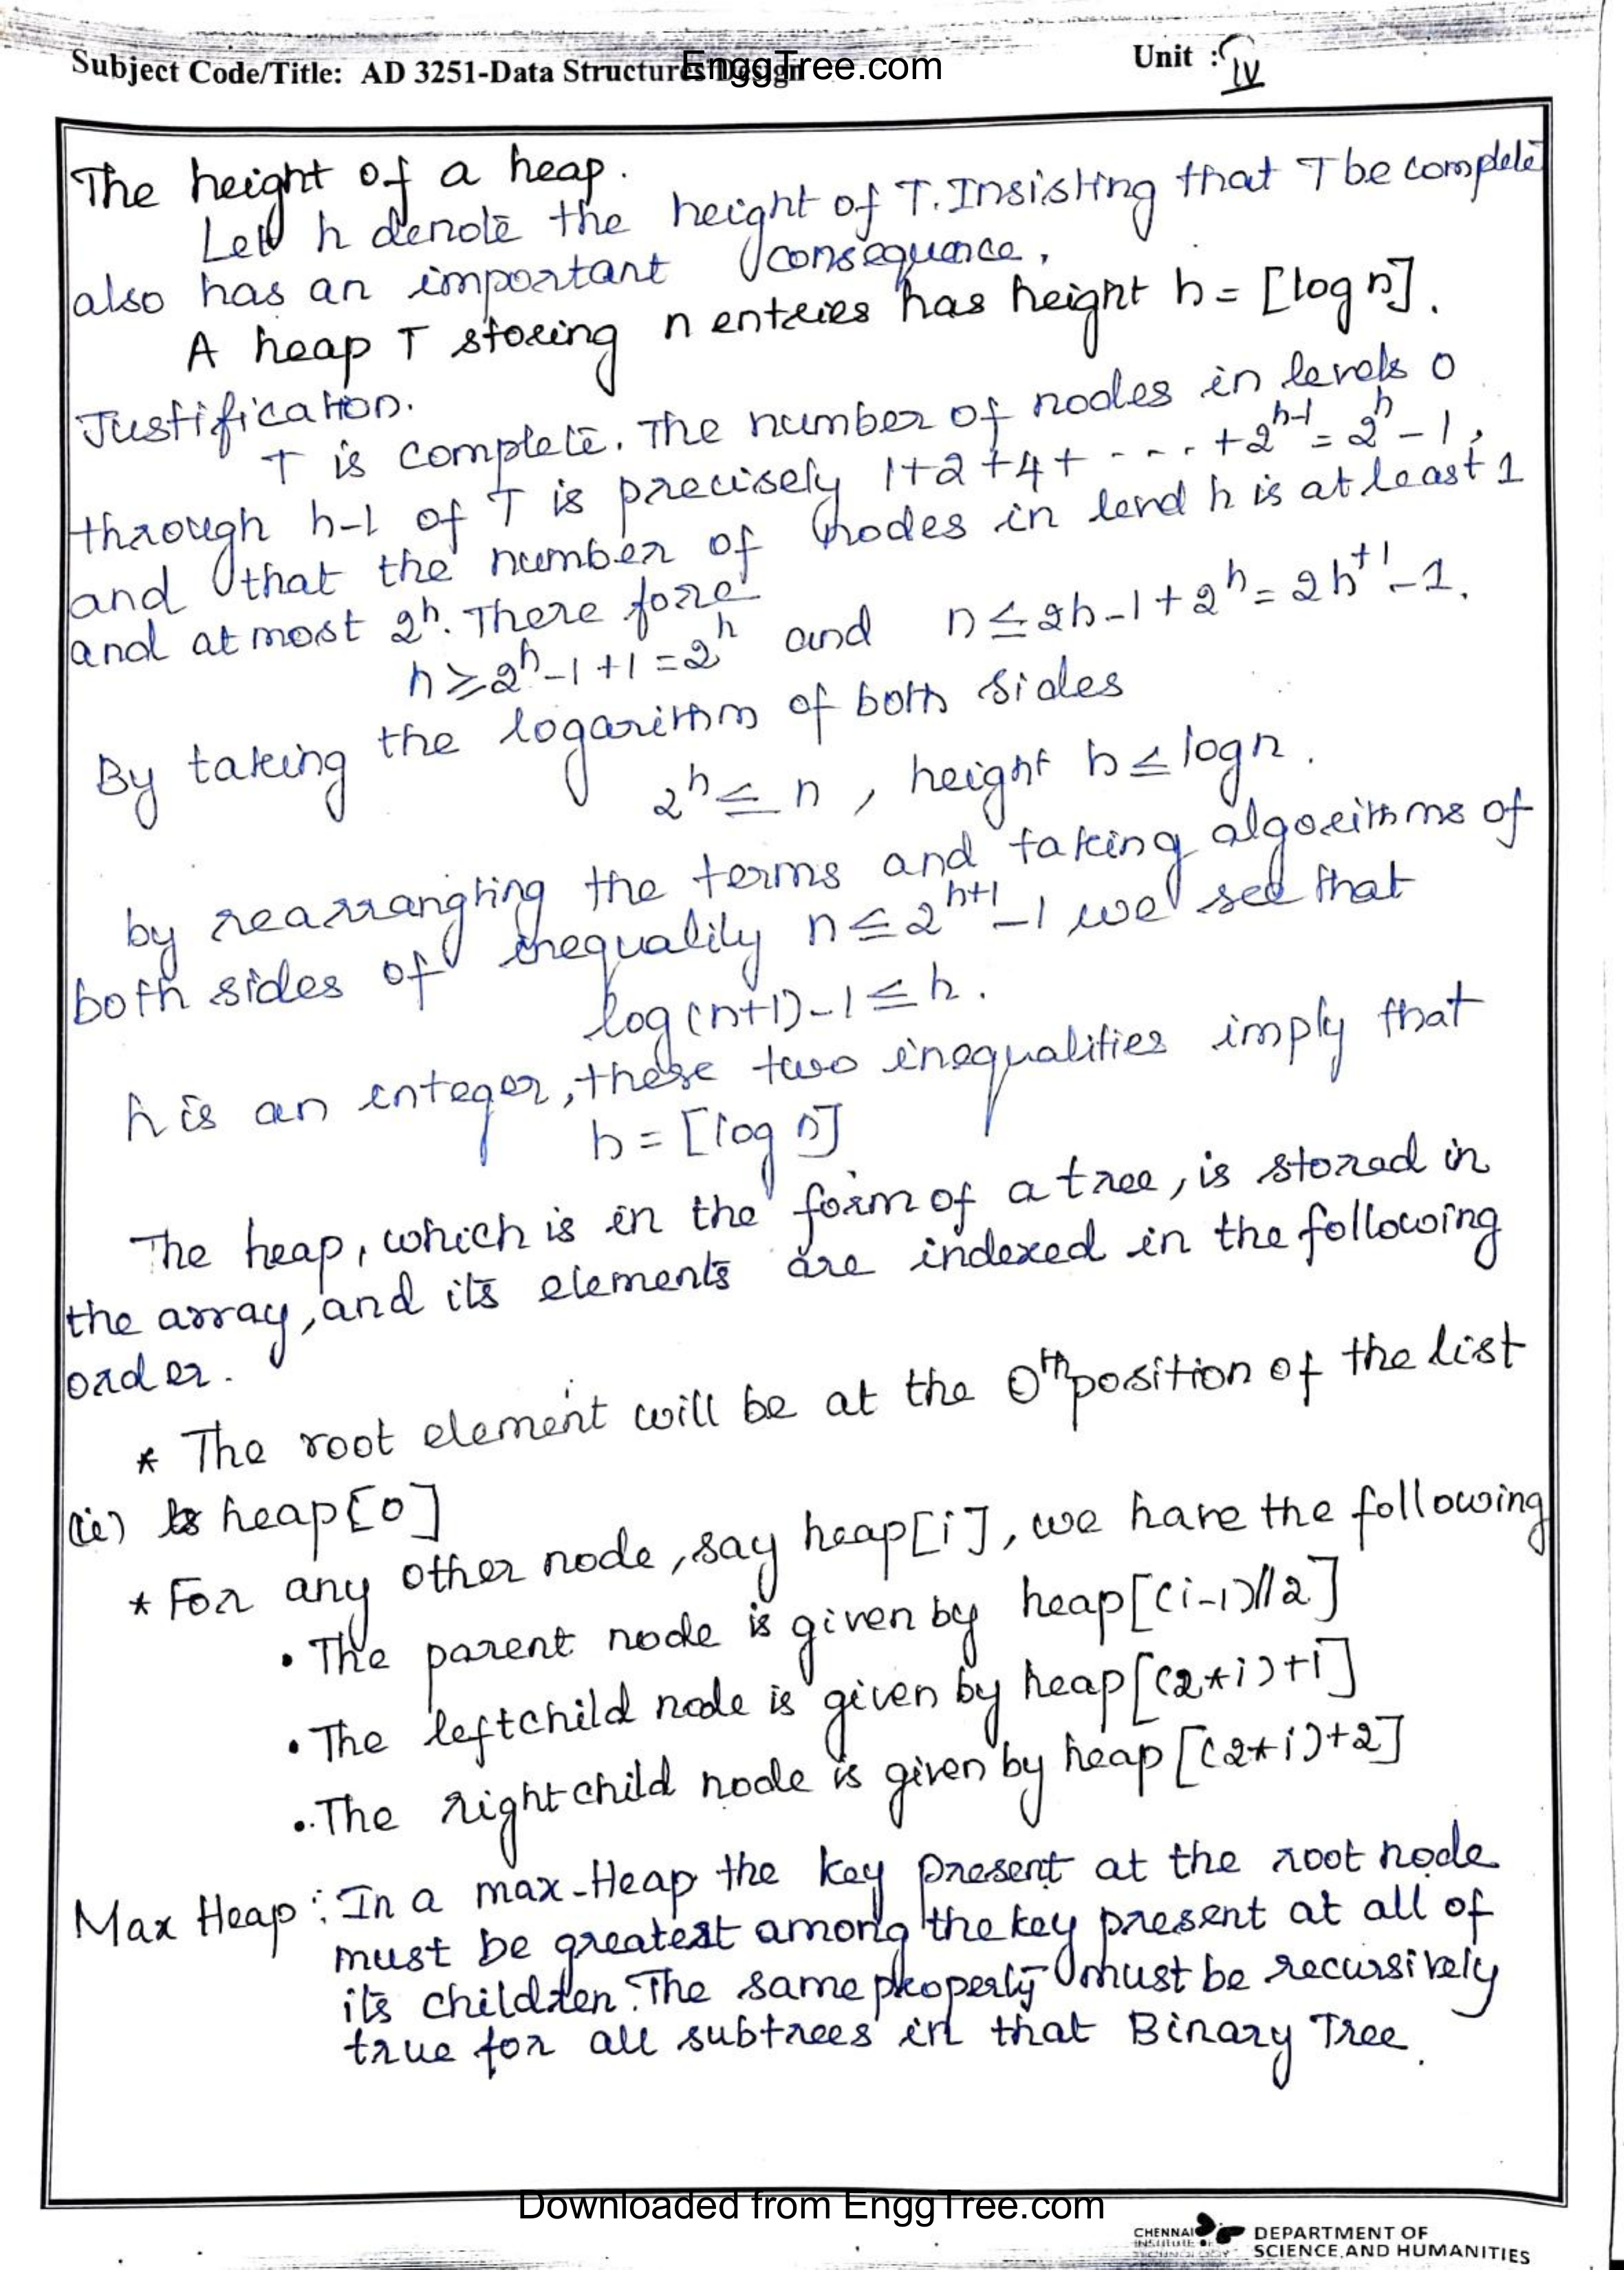 Subject Code/Title: AD 3251-Data Structures Design
EnggTree.com
Unit : IV
The height of a heap.
Let h denote the height of T. Insisting that T be complete
also has an important consequence,
A heap T storing n entries has height h = [log n].
Justification.
T is complete. The number of nodes in levels 0
through h-1 of T is precisely 1+2+4+ - - - . +2^h-1 = 2^h - 1,
and that the number of nodes in level h is at least 1
and at most 2^h. There fore
n ≥ 2^h -1 +1 = 2^h and n ≤ 2h-1 + 2^h = 2h^+1 - 1.
By taking the logarithm of both sides
2^h ≤ n , height h ≤ log n .
by rearrangting the terms and taking algorithms of
both sides of inequality n ≤ 2^h+1 - 1 we see that
log (n+1) - 1 ≤ h .
h is an integer, these two inequalities imply that
h = [log n]
The heap, which is in the form of a tree, is stored in
the array, and its elements are indexed in the following
order.
* The root element will be at the 0th position of the list
(ie) heap[0]
* For any other node, say heap[i], we have the following
• The parent node is given by heap[(i-1)//2]
• The leftchild node is given by heap[(2*i)+1]
• The rightchild node is given by heap[(2*i)+2]
Max Heap : In a max-Heap the key present at the root node
must be greatest among the key present at all of
its children. The same property must be recursively
true for all subtrees in that Binary Tree.
Downloaded from EnggTree.com
CHENNAI
INSTITUTE OF
TECHNOLOGY
DEPARTMENT OF
SCIENCE AND HUMANITIES